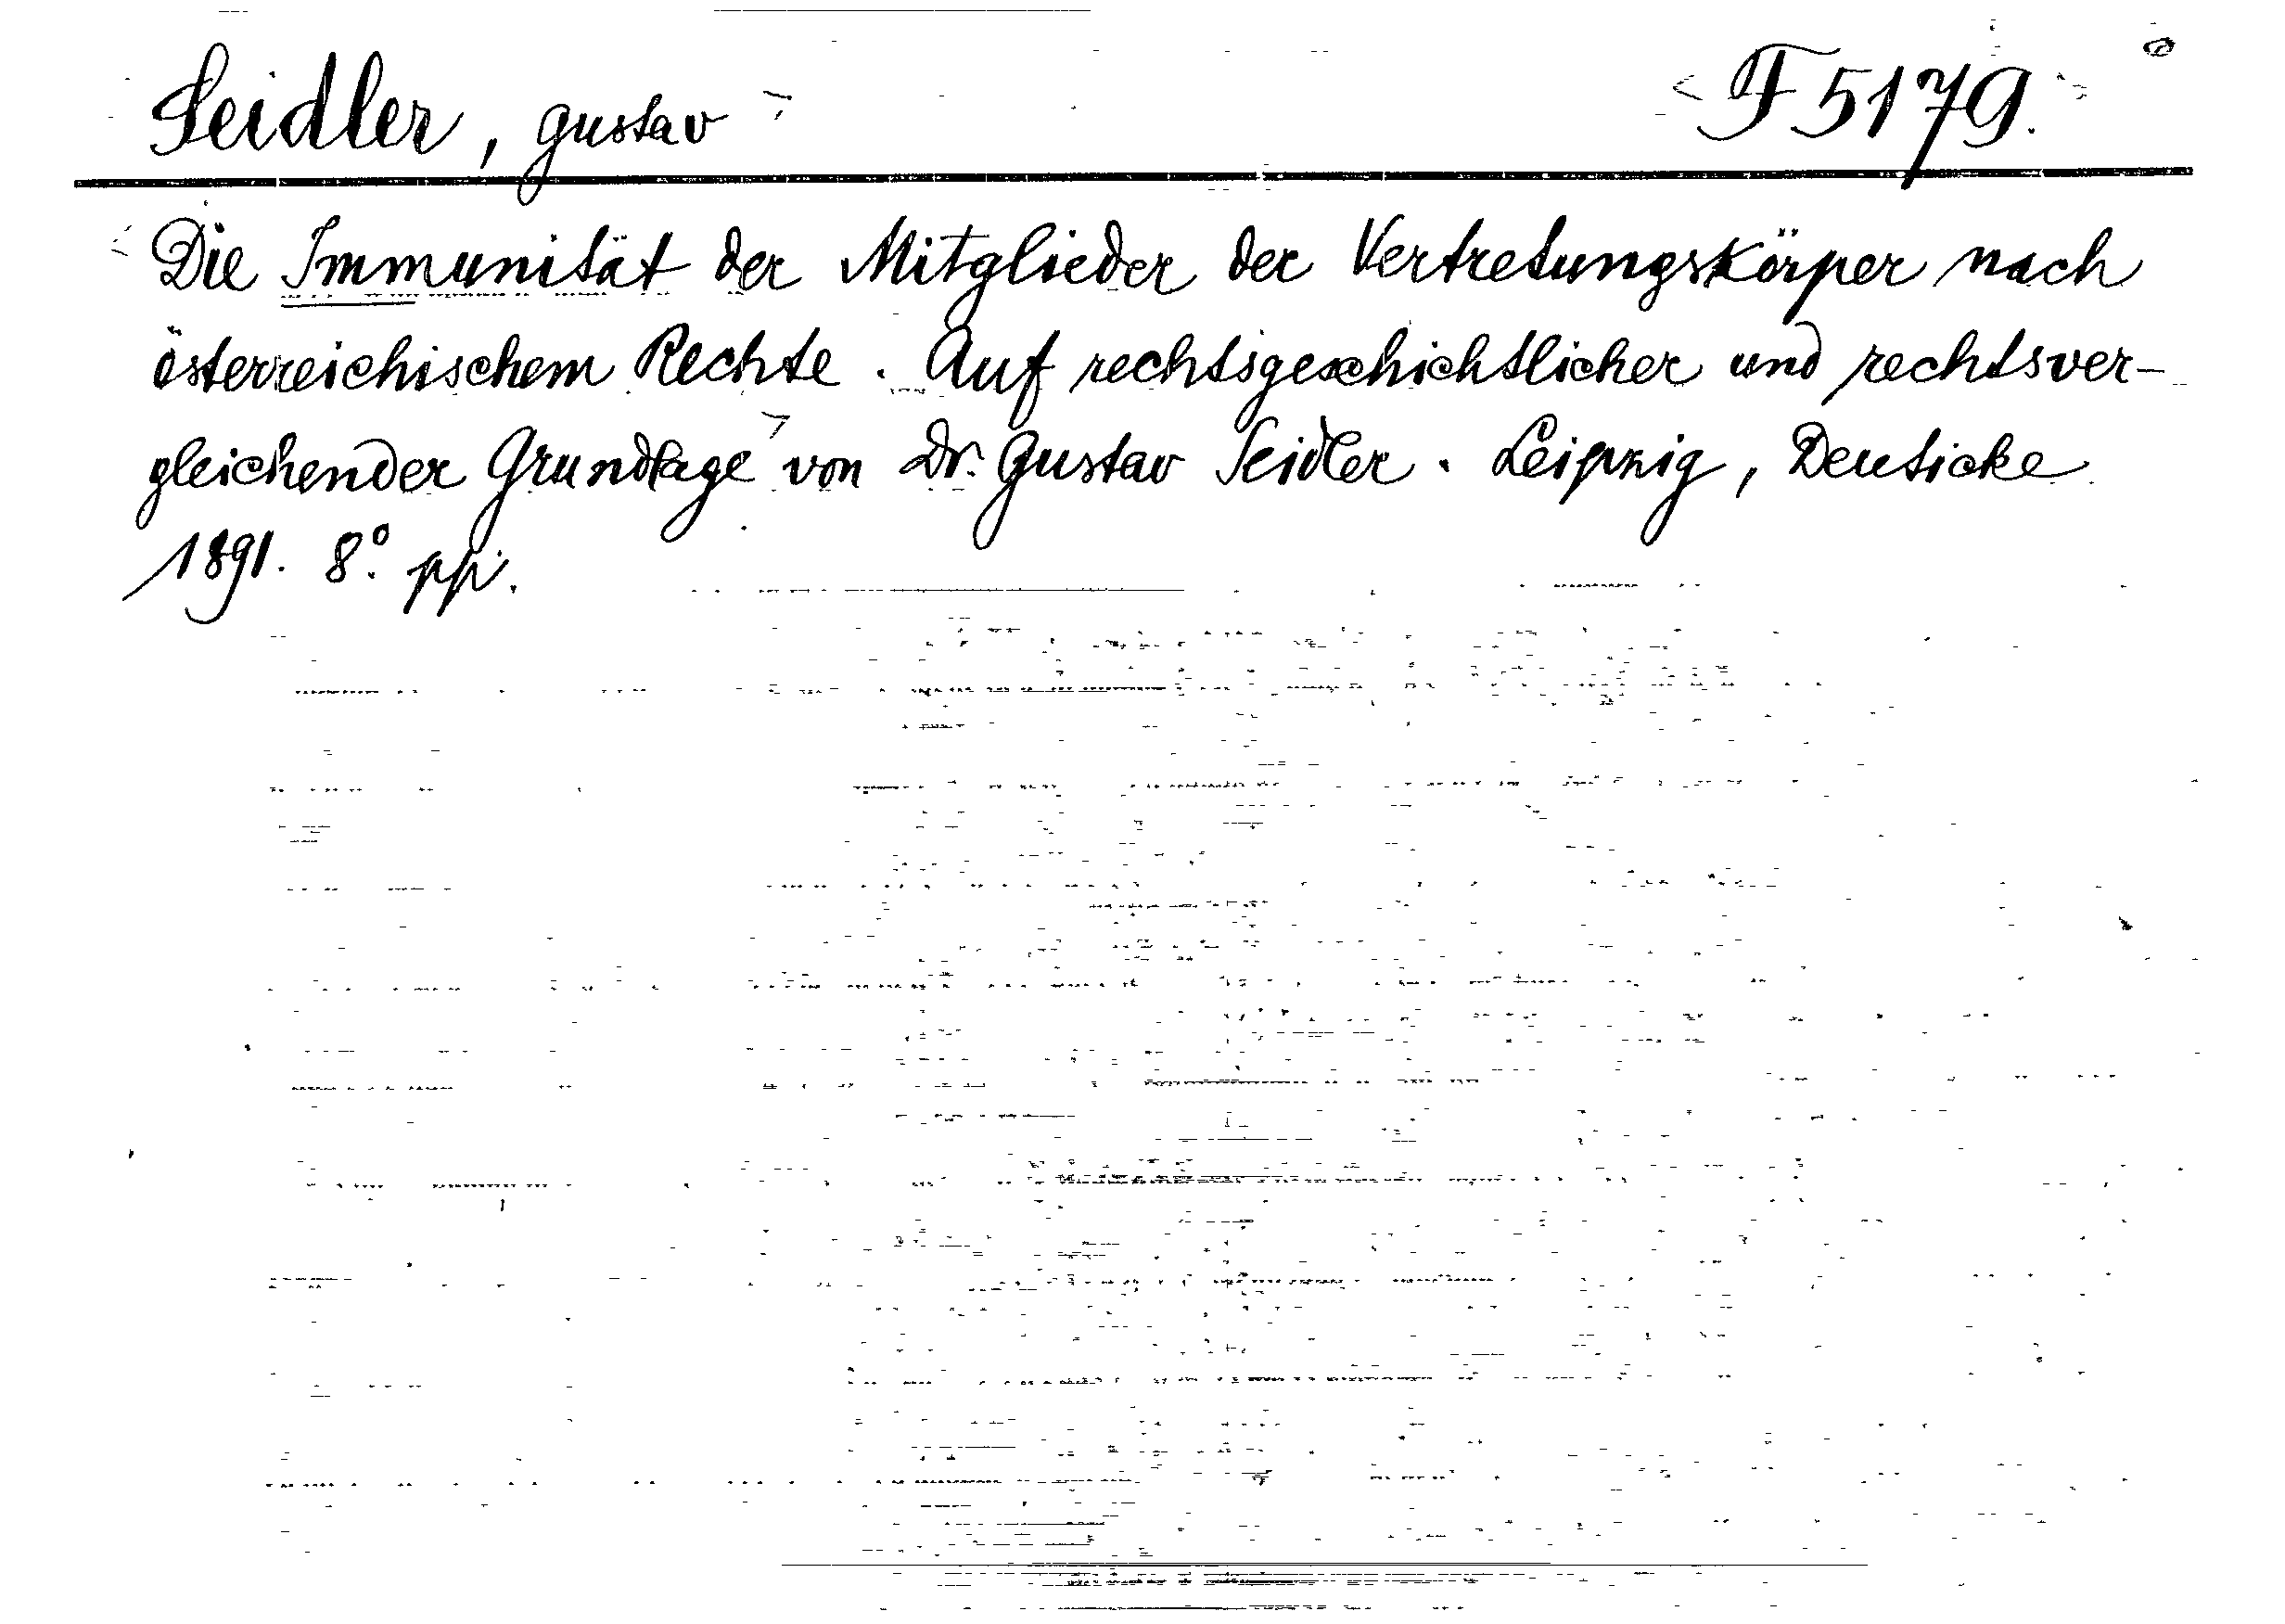 Seidler, Gustav F 5179.
Die Immunität der Mitglieder der Vertretungskörper nach
österreichischem Rechte. Auf rechtsgeschichtlicher und rechtsver-
gleichender Grundlage von Dr. Gustav Seidler. Leipzig, Deuticke
1891. 8°. pp.